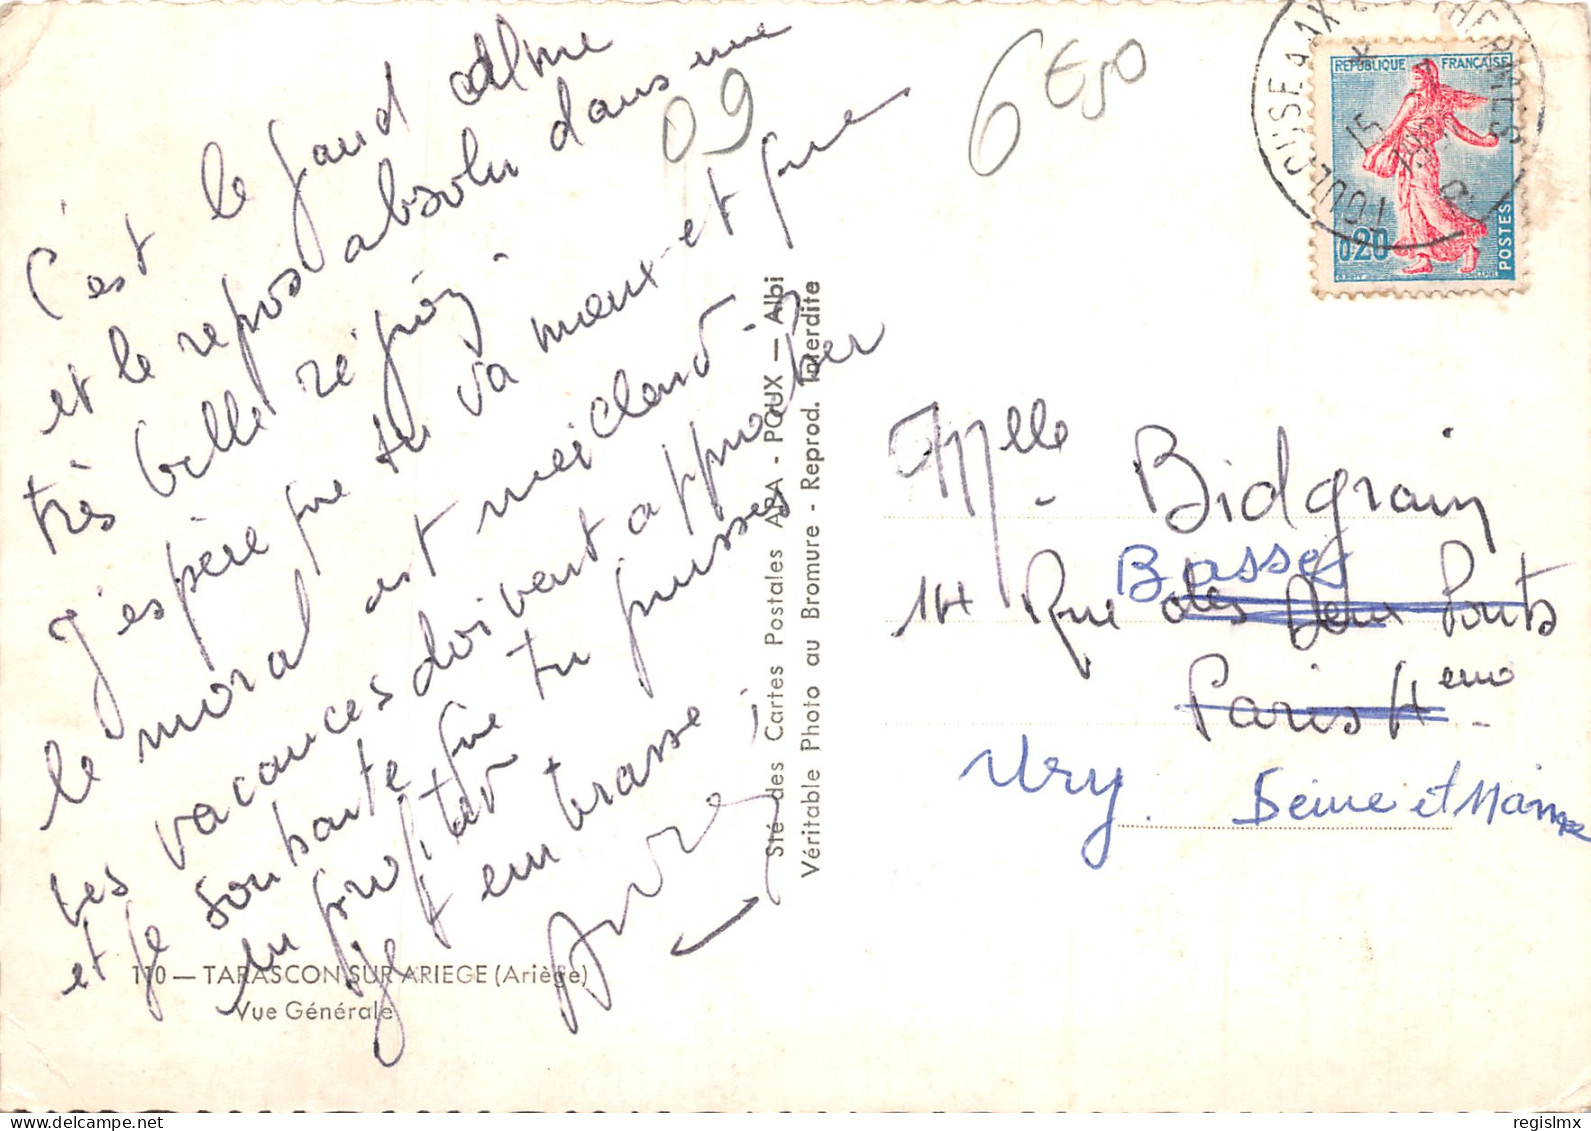 C'est le grand calme
et le repos absolu dans une
très belle région.
J'espère que tu va mieux et que
le moral est meilleur.
Les vacances doivent approcher
et je souhaite que tu puisses
en profiter
Je t'embrasse ;
André
09
6E50
RÉPUBLIQUE FRANÇAISE
0,20
POSTES
AX LES THERMES
15
Mlle Bidgrain
Basses
14 Rue des Deux Ponts
Paris 4eme
Ury. Seine et Marne
Sté des Cartes Postales APA - POUX — Albi
Véritable Photo au Bromure - Reprod. Interdite
110 — TARASCON SUR ARIEGE (Ariège)
Vue Générale
regislmx